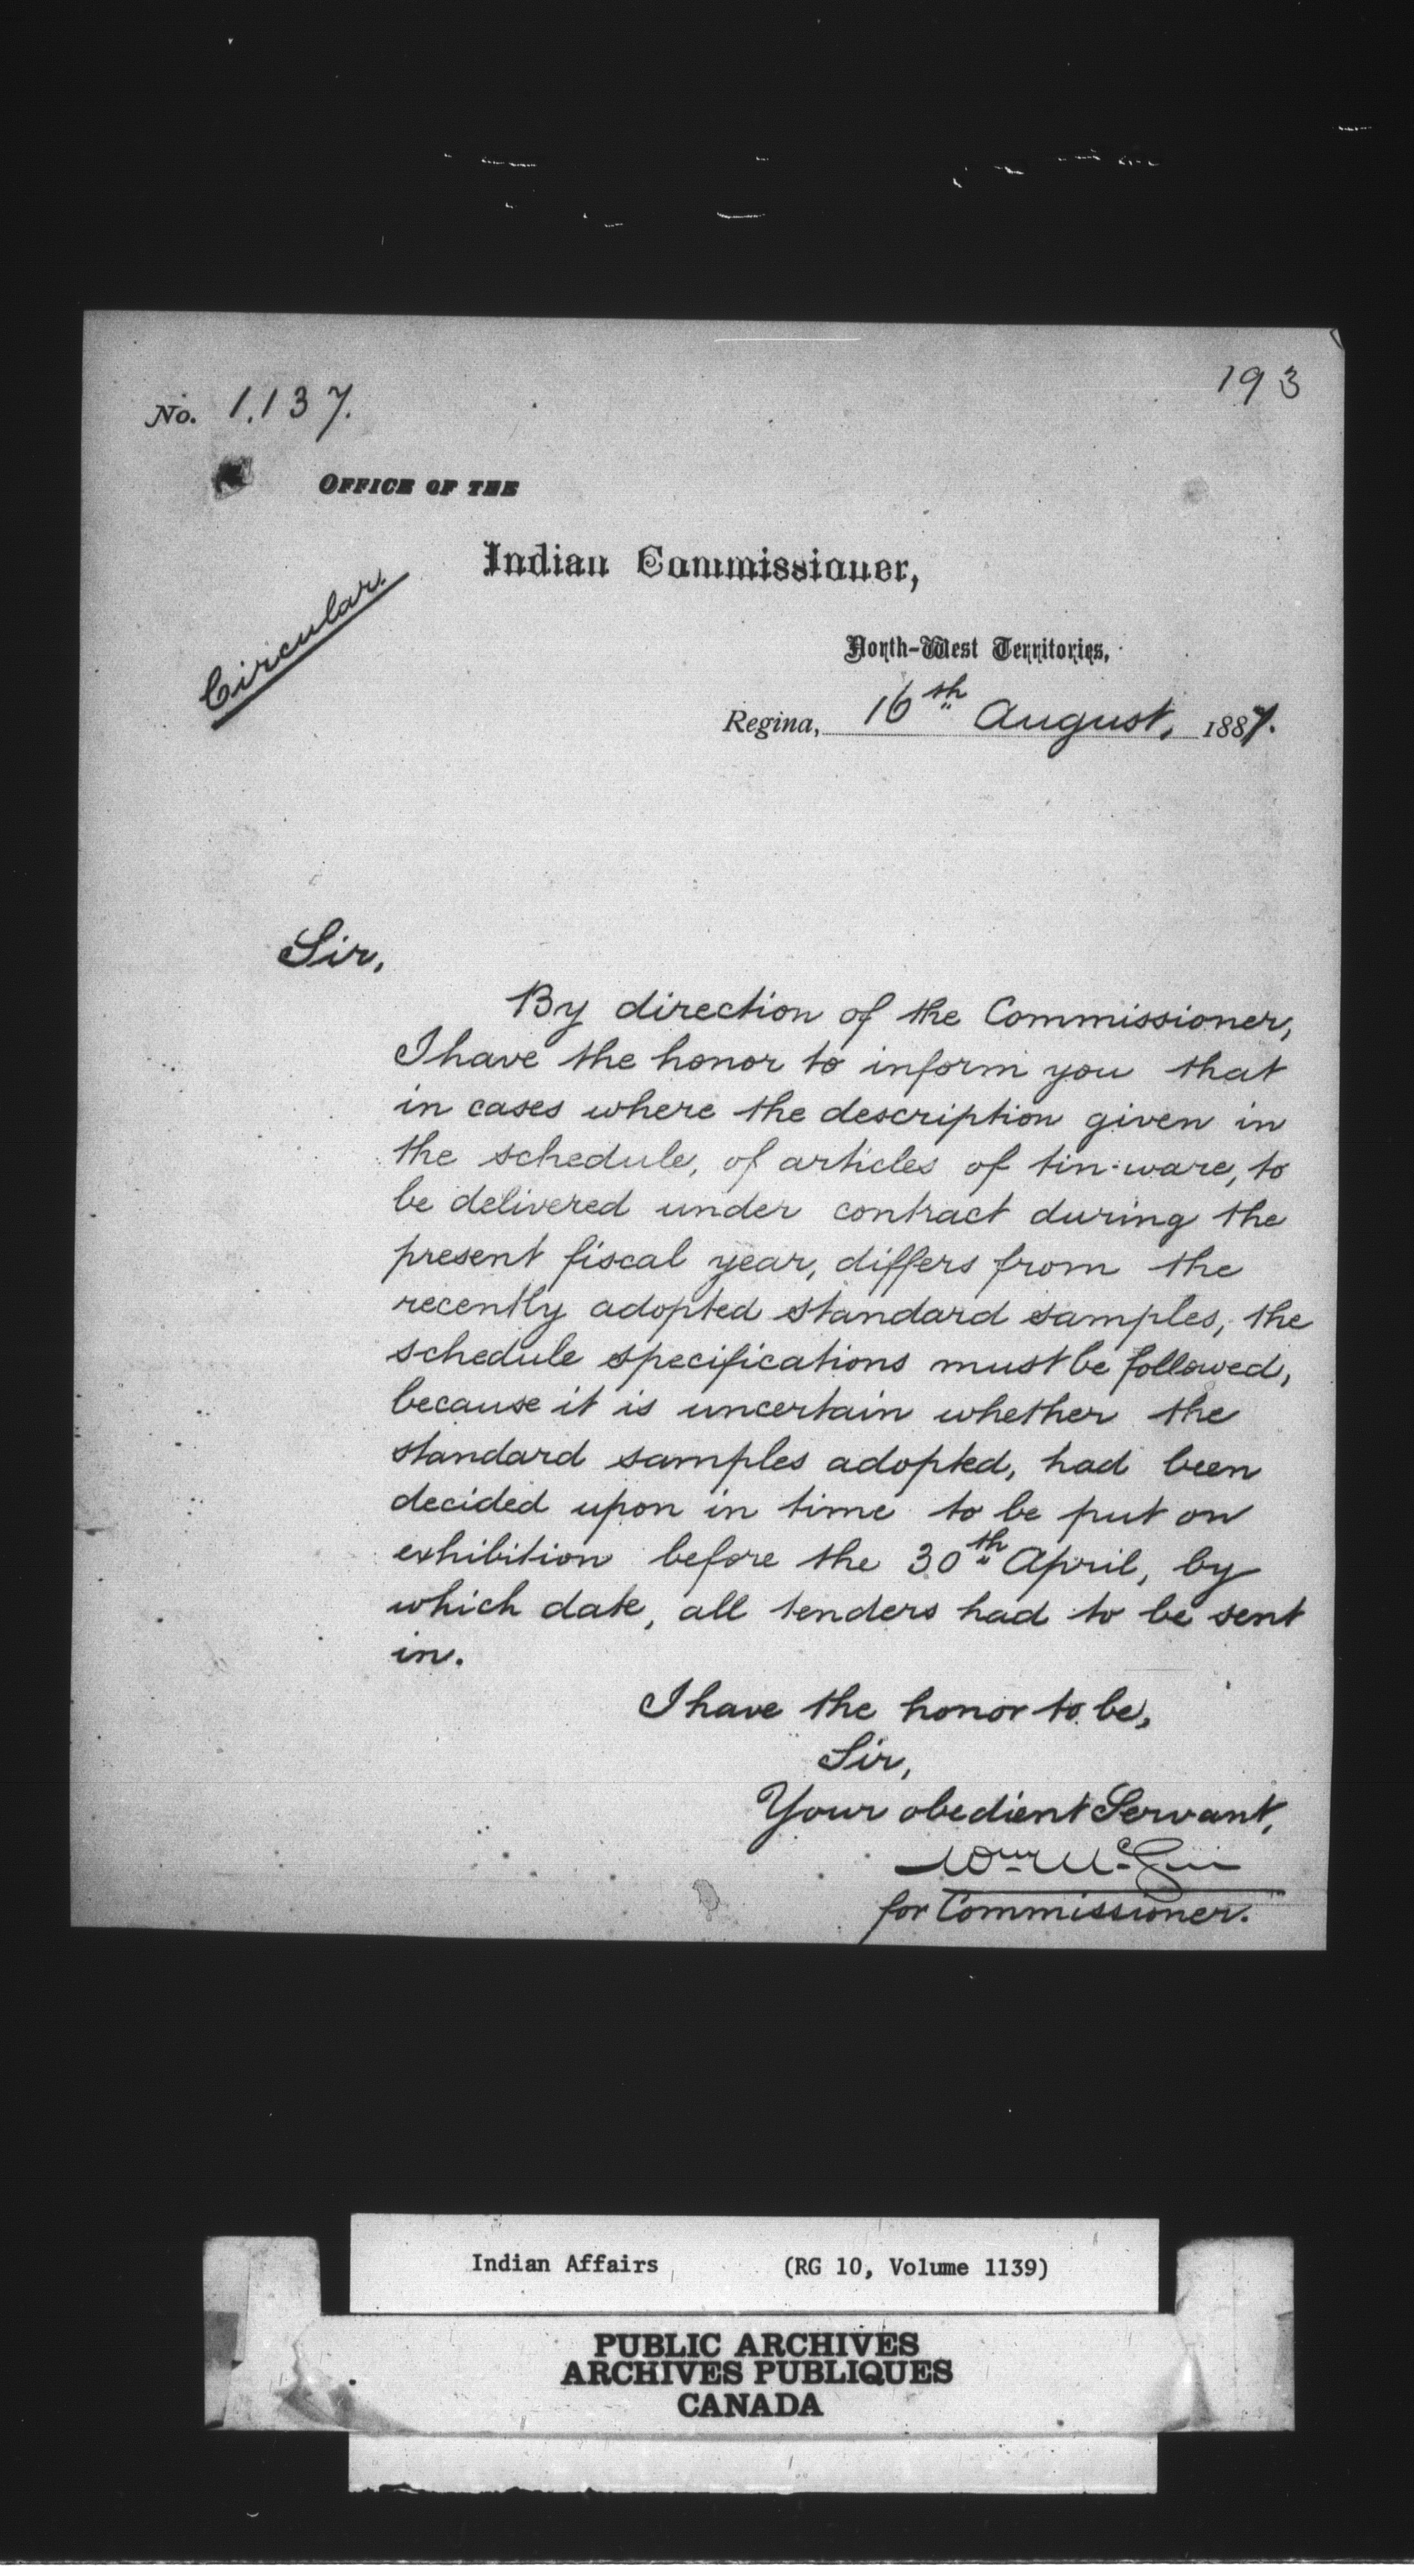 193
No. 1,137.
OFFICE OF THE
Indian Commissioner,
Circular.
North-West Territories,
Regina, 16th August, 1887.
Sir,
By direction of the Commissioner,
I have the honor to inform you that
in cases where the description given in
the schedule, of articles of tin-ware, to
be delivered under contract during the
present fiscal year, differs from the
recently adopted standard samples, the
schedule specifications must be followed,
because it is uncertain whether the
standard samples adopted, had been
decided upon in time to be put on
exhibition before the 30th April, by
which date, all tenders had to be sent
in.
I have the honor to be,
Sir,
Your obedient Servant,
Wm
for Commissioner.
Indian Affairs (RG 10, Volume 1139)
PUBLIC ARCHIVES
ARCHIVES PUBLIQUES
CANADA